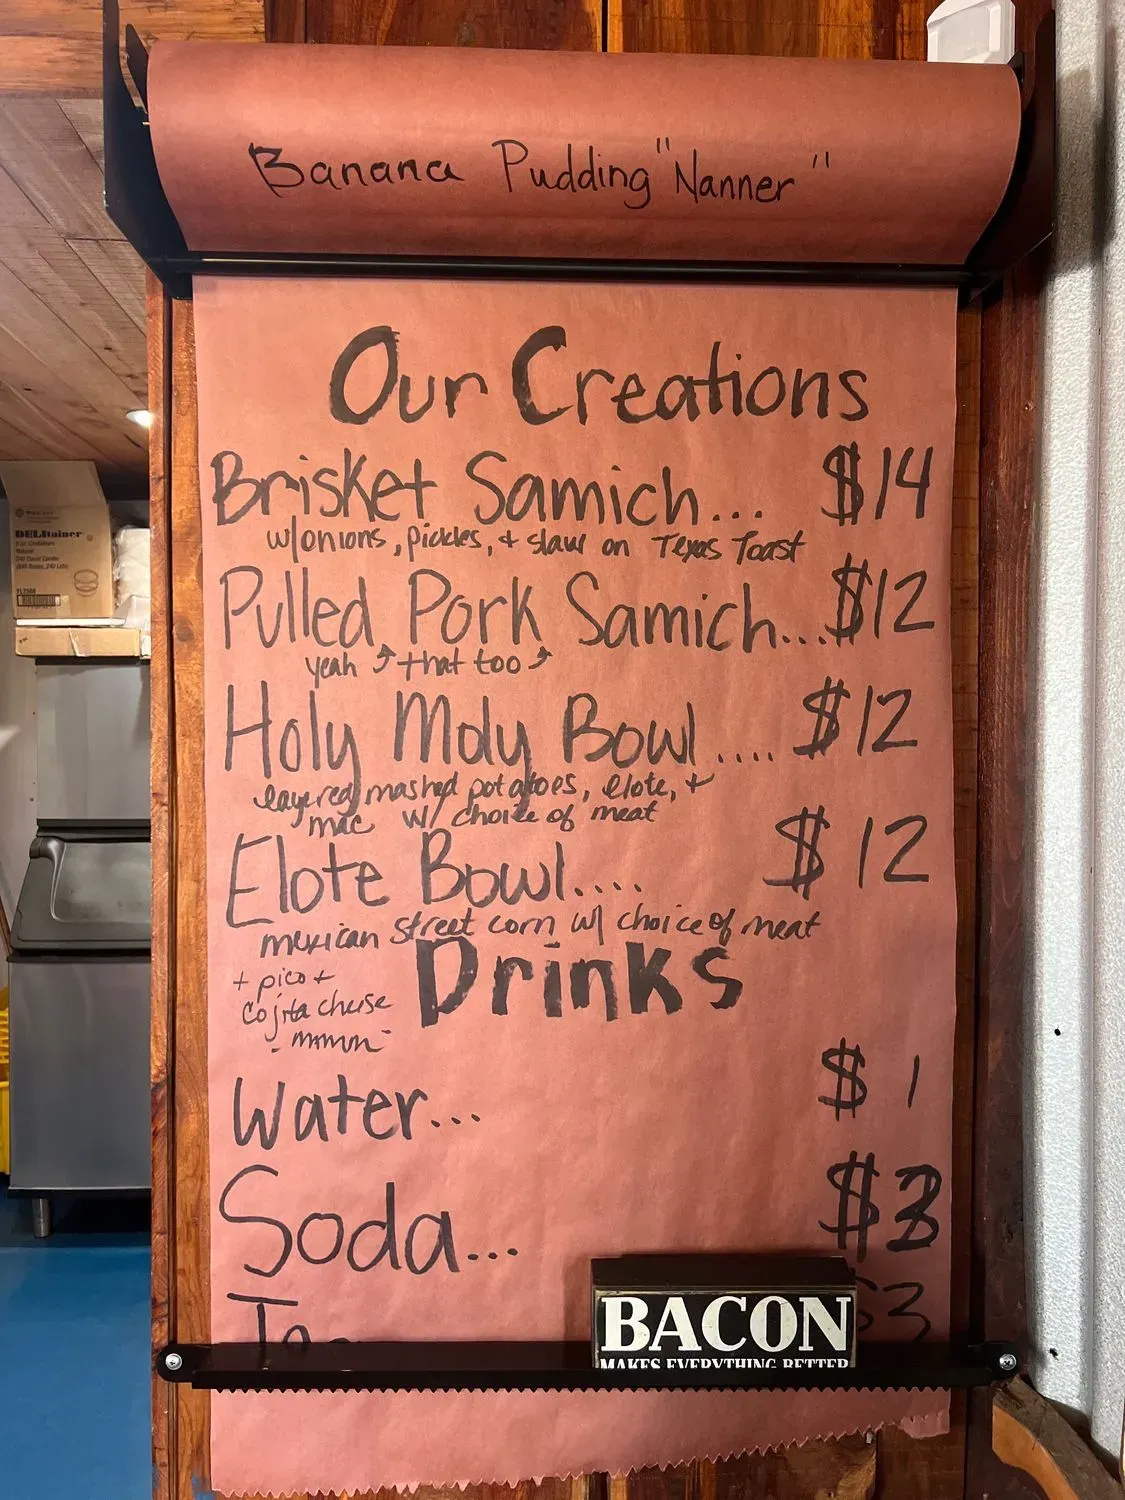 Banana Pudding "Nanner"
Our Creations
Brisket Samich... $14
w/onions, pickles, + slaw on Texas Toast
Pulled Pork Samich... $12
yeah ⤴ that too ⤴
Holy Moly Bowl.... $12
layered mashed potatoes, elote, +
mac w/ choice of meat
Elote Bowl.... $12
mexican street corn w/ choice of meat
+ pico +
Cojita cheese
- mmmm -
Drinks
Water... $1
Soda... $3
$3
BACON
MAKES EVERYTHING BETTER
DELItainer